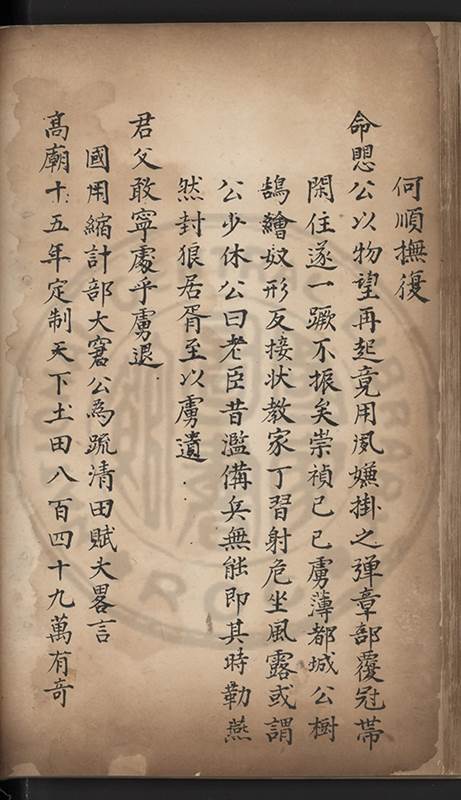 何順撫復
命愳公以物望再起竟用夙嫌掛之弾章部覆冠帯
閑住遂一蹶不振矣崇禎己巳虜薄都城公樹
鵠繪奴形反接状教家丁習射危坐風露或謂
公少休公曰老臣昔濫備兵無能即其時勒燕
然封狼居胥至以虜遺
君父敢寧處乎虜退
國用縮計部大窘公為疏清田賦大畧言
髙廟十五年定制天下土田八百四十九萬有奇